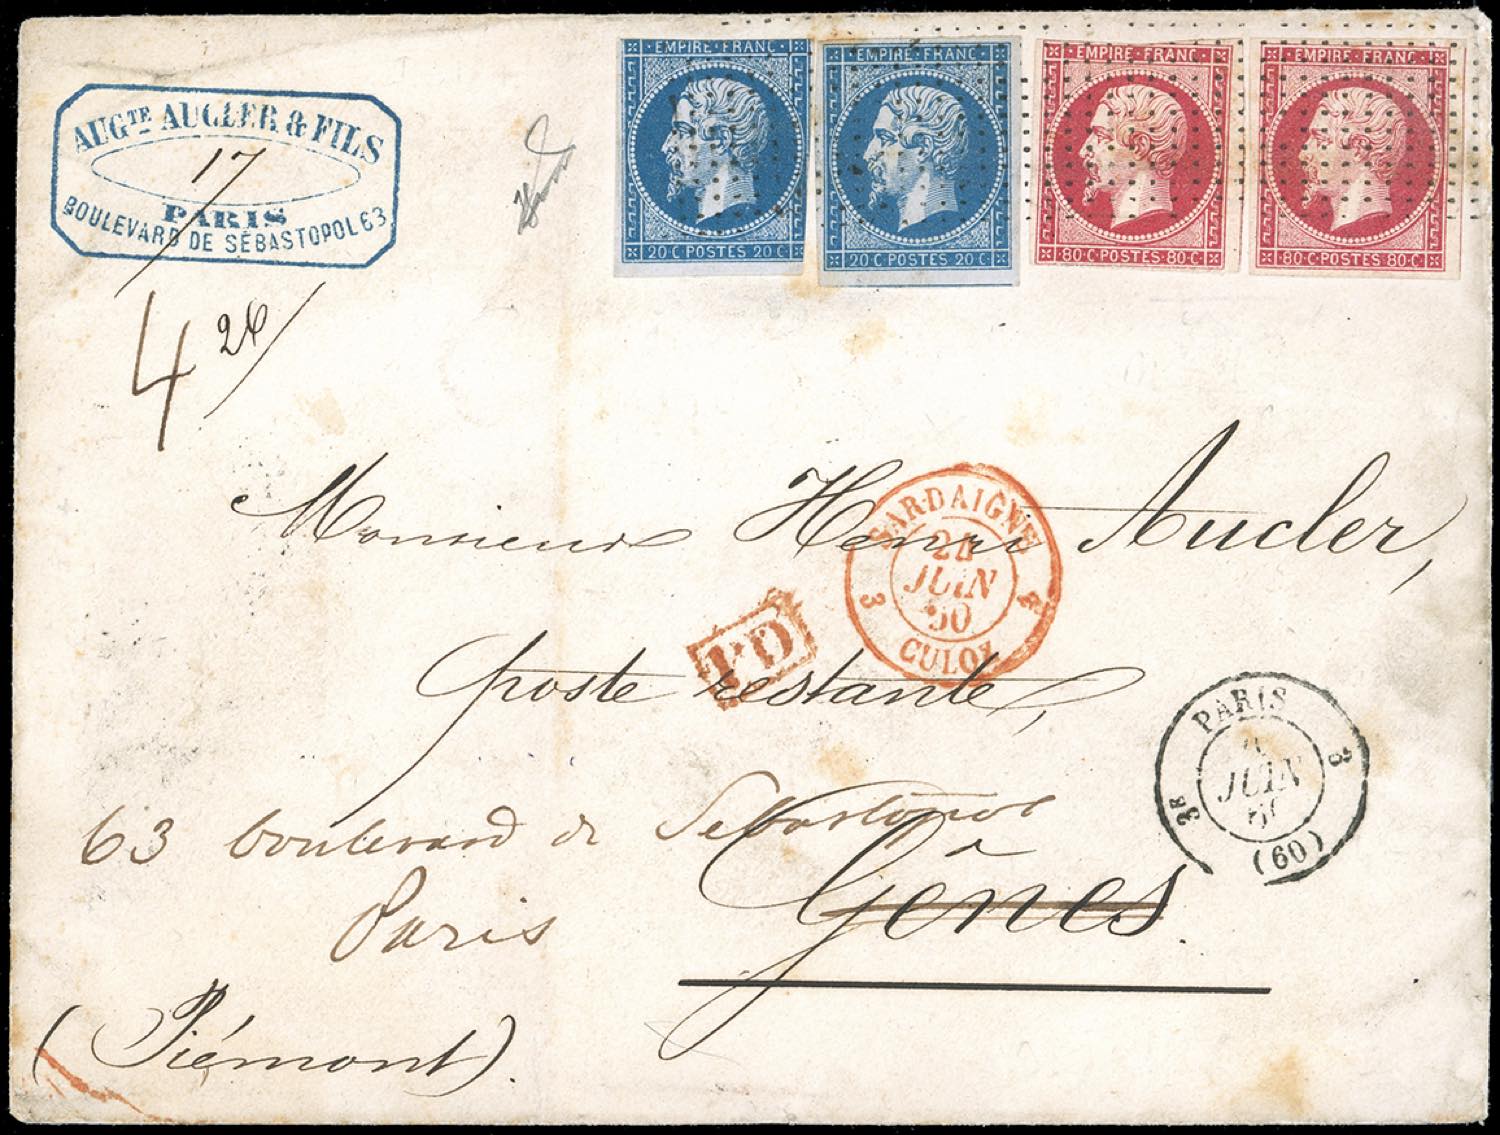 AUG.TE AUCLER & FILS
17
PARIS
BOULEVARD DE SÉBASTOPOL 63
EMPIRE FRANC
20 C POSTES 20 C
EMPIRE FRANC
20 C POSTES 20 C
EMPIRE FRANC
80 C POSTES 80 C
EMPIRE FRANC
80 C POSTES 80 C
4 26
Monsieur Henri Aucler,
SARDAIGNE
24
JUIN
60
3 2
CULOZ
PD
poste restante,
PARIS
JUIN
3E 3
(60)
63 boulevard de Sebastopol
Gênes.
Paris
(Piémont).